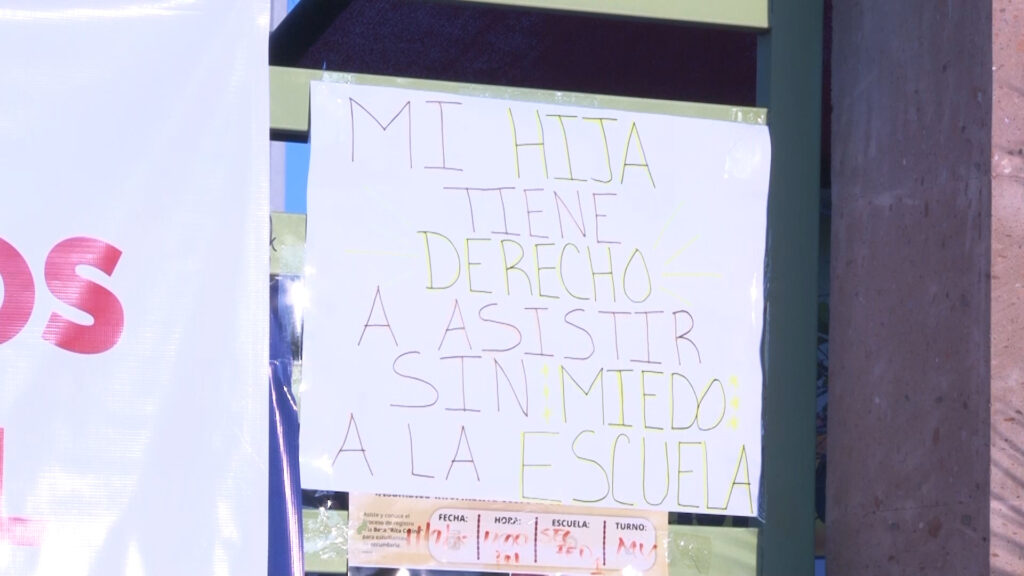 OS
MI HIJA
TIENE
DERECHO
A ASISTIR
SIN MIEDO
A LA ESCUELA
Asiste y conoce el
proceso de registro
para estudiantes
secundaria.
FECHA: HORA: ESCUELA: TURNO: